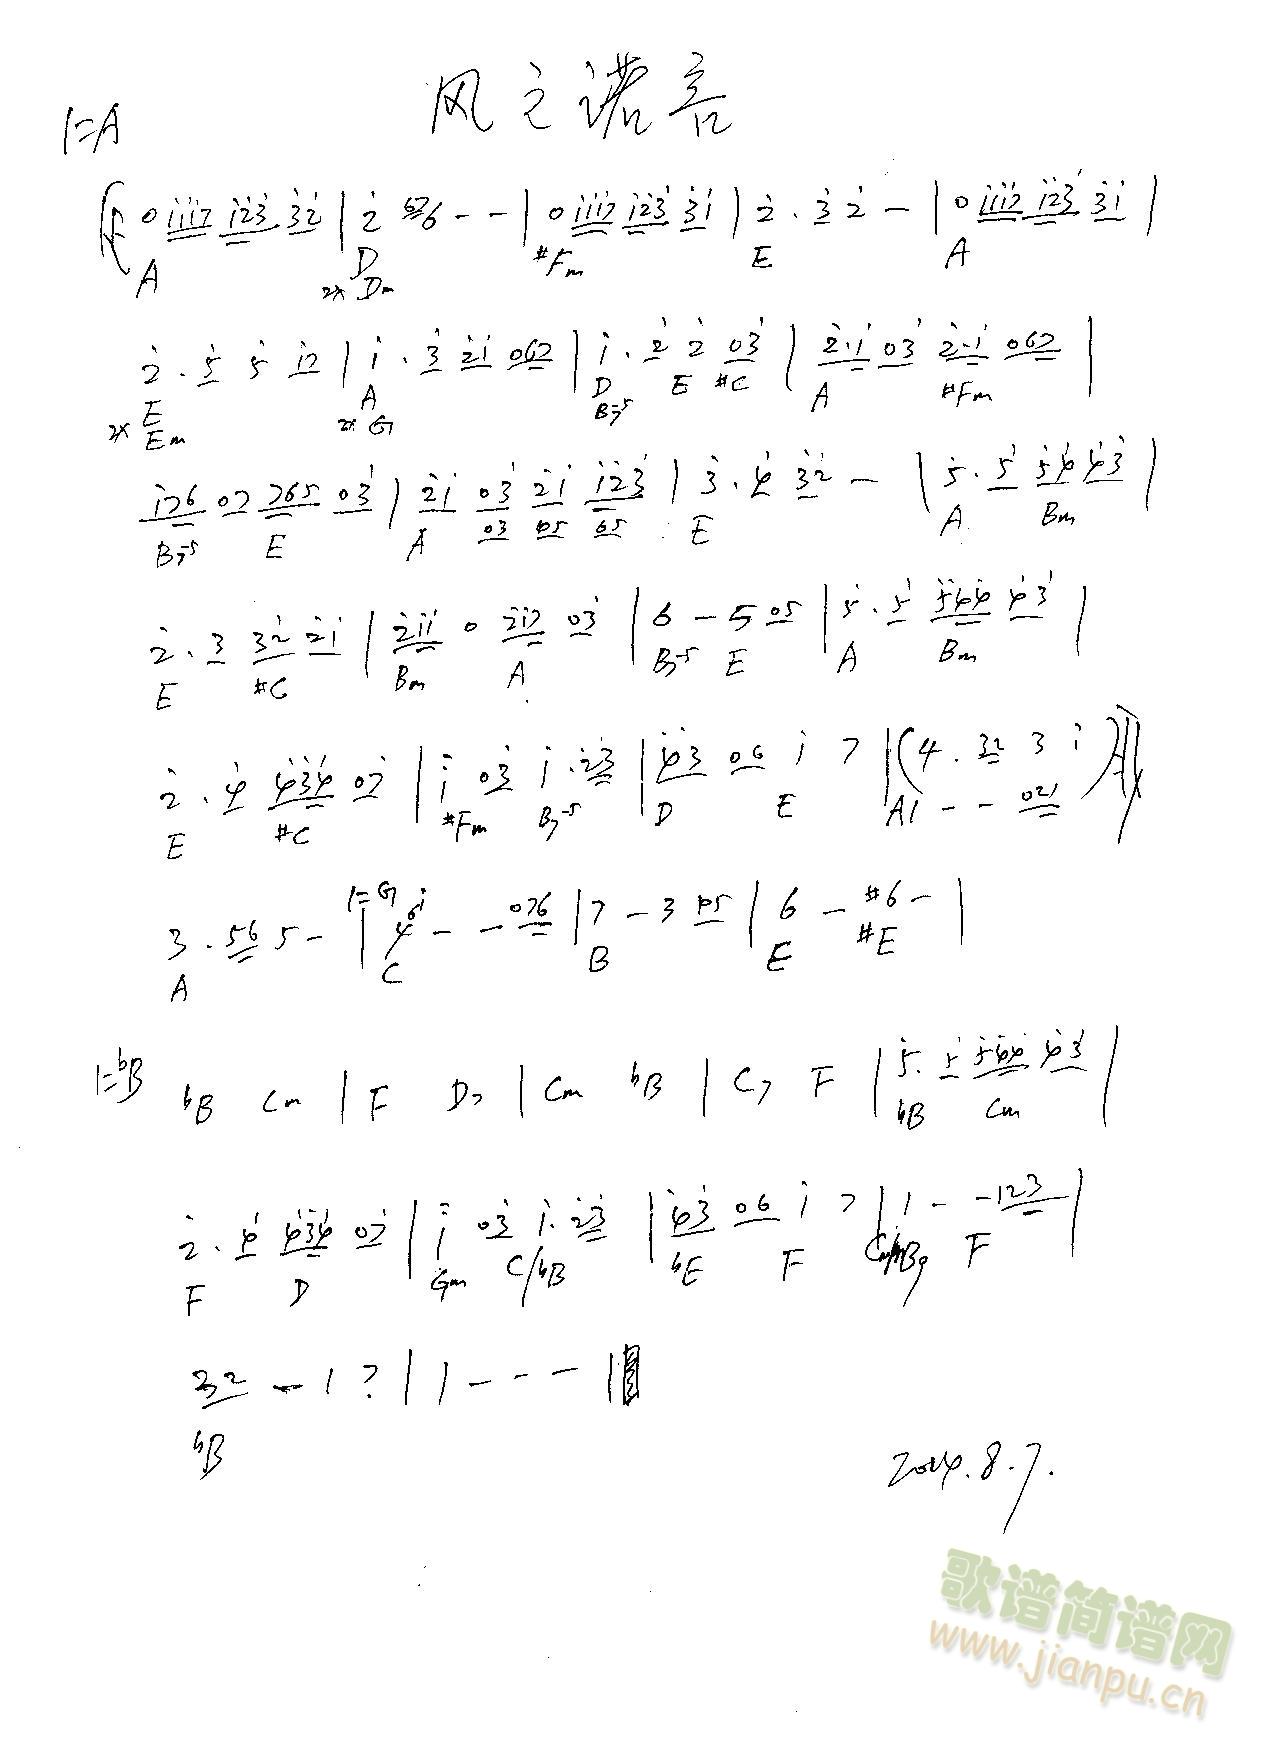 风之诺言
1=A
0 1117 123 32 | 2 6 - - | 0 1117 123 31 | 2 . 3 2 - | 0 1112 123 31 |
A D #Fm E A
2x Dm
2 . 5 5 12 | 1 . 3 21 062 | 1 . 2 2 03 | 2.1 03 2.1 062 |
E A D E #C A #Fm
2x Em 2x G B7-5
176 07 765 03 | 21 03 21 123 | 3 . 4 32 - | 5 . 5 54 43 |
03 65
B7-5 E A E A Bm
2 . 3 32 21 | 211 0 217 03 | 6 - 5 05 | 5 . 5 544 43 |
E #C Bm A B7-5 E A Bm
2 . 4 434 07 | 1 03 1 . 23 | 43 06 1 7 | (4 . 32 3 1)
E #C #Fm B7-5 D E A1 - - 021
1=G
3 . 56 5 - | 4 - - 076 | 7 - 3 | 6 - #6 - |
A C B E #E
1=bB
bB Cm | F D7 | Cm bB | C7 F | 5 . 5 544 43 |
bB Cm
2 . 4 434 07 | 1 03 1 . 23 | 43 06 1 7 | 1 - - 123 |
F D Gm C/bB bE F F
32 - 1 ? | 1 - - - |
bB
2014.8.7.
歌谱简谱网
www.jianpu.cn